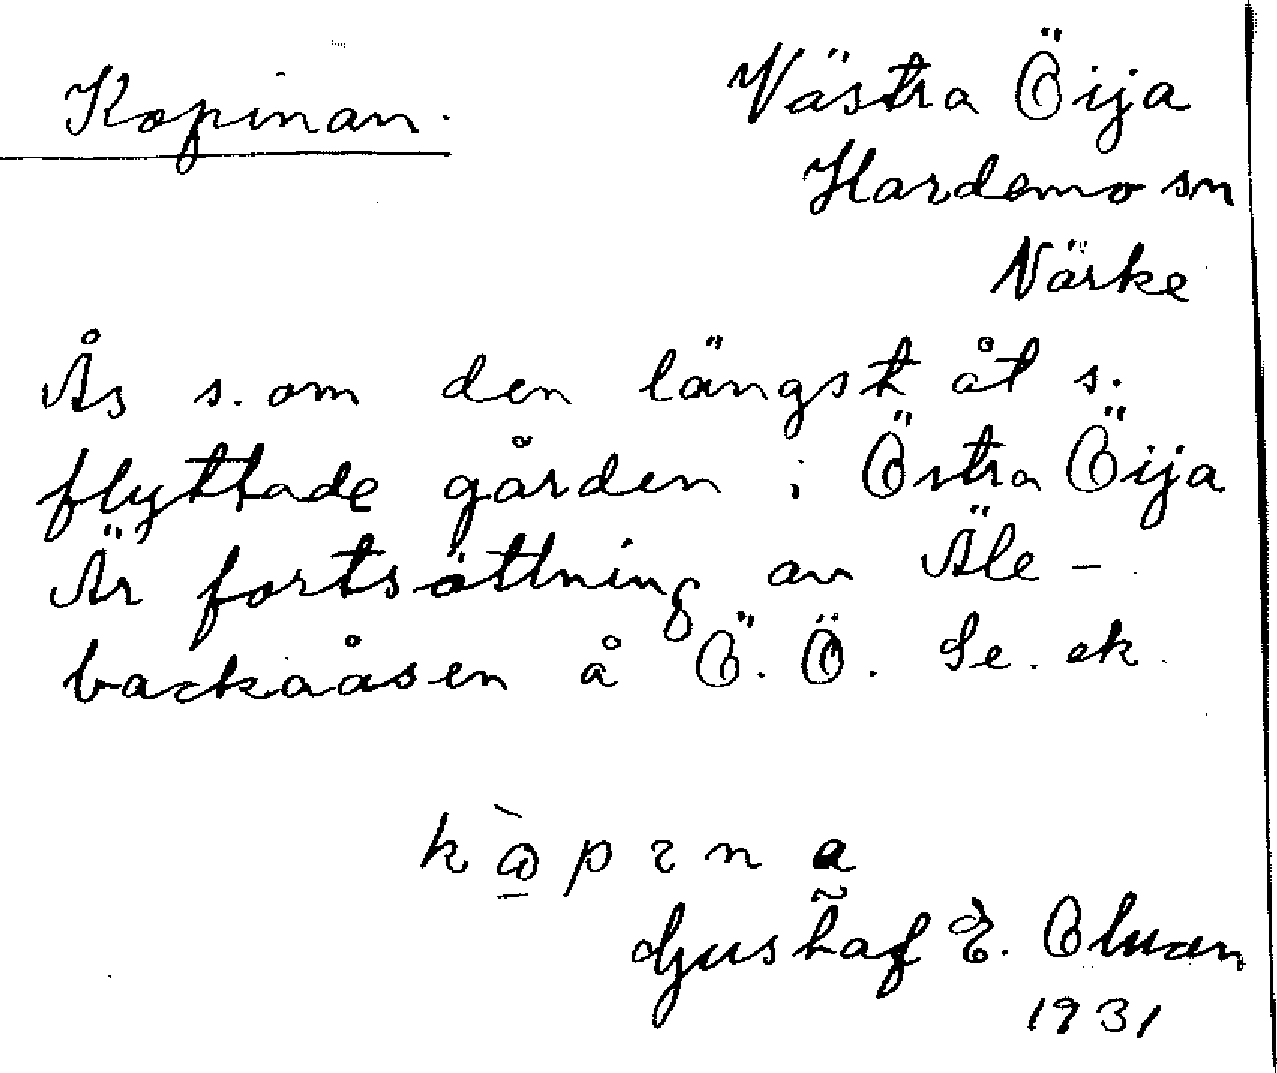 Kopinan.
Västra Öija
Hardemo sn
Närke
Ås s. om den längst åt s.
flyttade gården i Östra Öija
Är fortsättning av Äle-
backaåsen å Ö. Ö. Se. ek.
Gustaf E. Olsson
1931